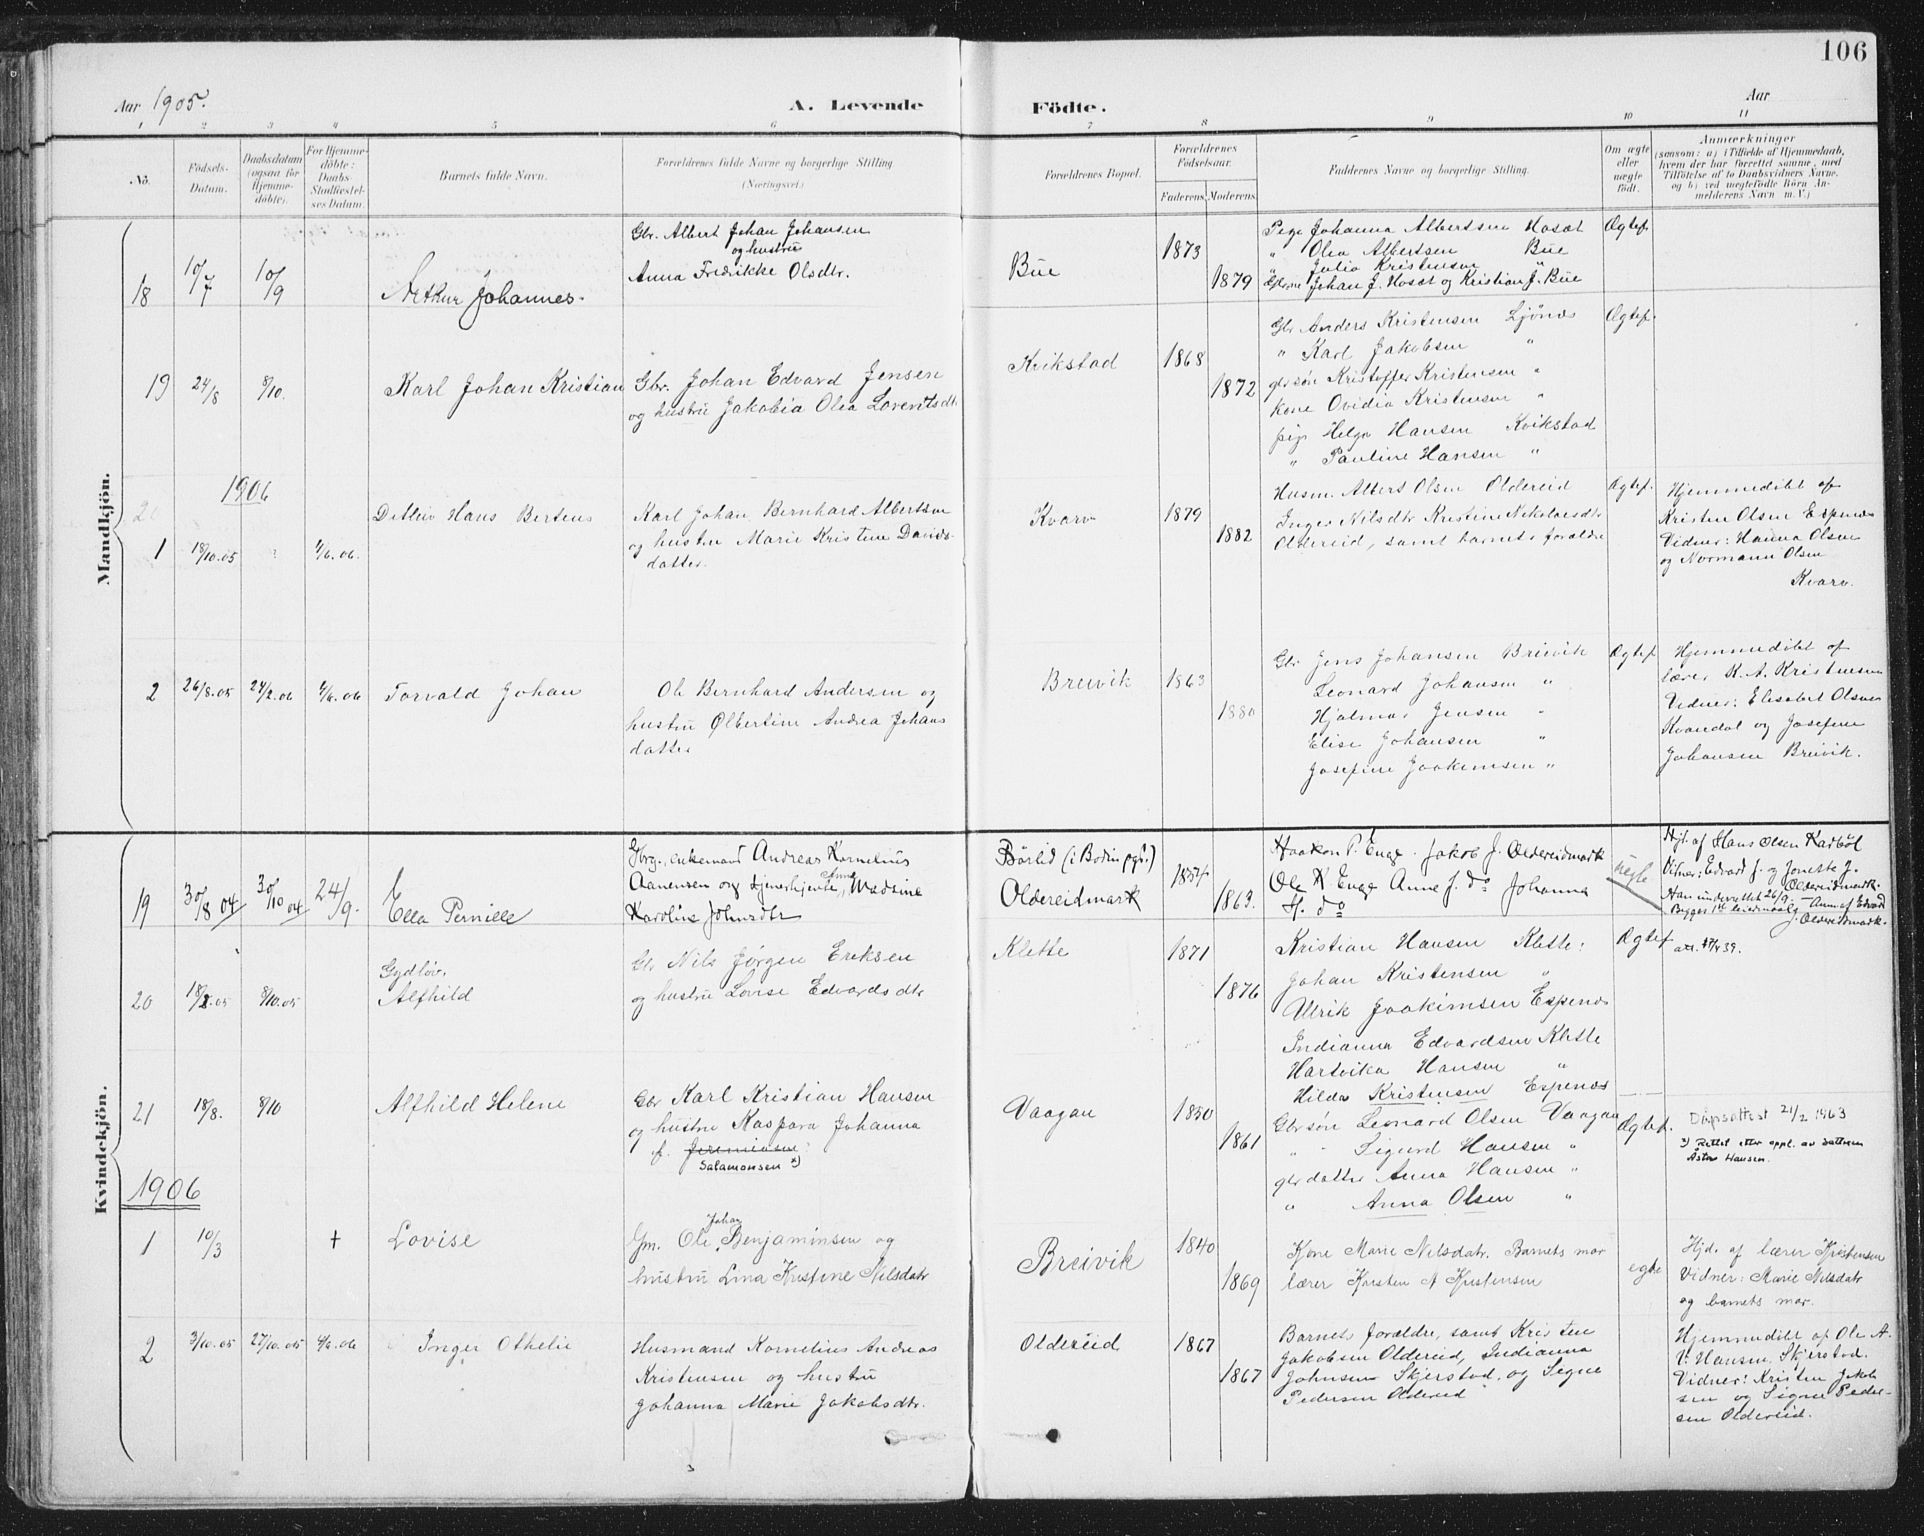 106
Aar 1905.
A. Levende Födte.
Aar
1 2 3 4 5 6 7 8 9 10 11
No.
Födsels-
Datum.
Daabsdatum
(ogsaa for
Hjemme-
döbte).
For Hjemme-
döbte:
Daabs-
Stadfæstel-
ses Datum.
Barnets fulde Navn.
Forældrenes fulde Navne og borgerlige Stilling
(Næringsvei)
Forældrenes Bopæl.
Forældrenes
Födselsaar.
Faderens Moderens
Faddernes Navne og borgerlige Stilling.
Om ægte
eller
uægte
födt.
Anmærkninger
(saasom: a) i Tilfælde af Hjemmedaab,
hvem der har forrettet samme, med
Tilföielse af to Daabsvidners Navne,
og b) ved uegtefödte Börn An-
melderens Navn m. V.)
Mandkjön.
18 10/7 10/9 Arthur Johannes.
Gbr. Albert Johan Johansen
og hustru
Anna Fredrikke Olsdtr.
Bue 1873 1879
Pige Johanna Albertsen Hosæt
" Olea Albertsen Bue
" Julia Kristensen "
Gbrne Johan J. Hosæt og Kristian J. Bue
Ægtef.
19 24/8 8/10. Karl Johan Kristian
Gbr. Johan Edvard Jensen
og hustru Jakobia Olea Lorentsdtr
Kvikstad 1868 1872
Gbr Anders Kristensen Ljönes
" Karl Jakobsen "
gbrsøn Kristoffer Kristensen "
kone Ovidia Kristensen "
pige Helga Hansen Kvikstad
" Pauline Hansen "
Ægtef.
1906
1 18/10.05 4/6.06. Detlev Hans Bertens
Karl Johan Bernhard Albertsen
og hustru Marie Kristine Davids-
datter.
Kvarv 1879 1882
Husm. Albert Olsen Oldereid
Inger Nilsdtr Kristine Nikolaisdtr
Oldereid, samt barnets forældre
Ægtef.
Hjemmedöbt af
Kristen Olsen Espenæs
Vidner: Hanna Olsen
og Normann Olsen
Kvarv.
2 26/8.05 24/2.06 4/6.06 Torvald Johan
Ole Bernhard Andersen og
hustru Olbertine Andrea Johans
datter
Breivik 1863 1880
Gbr Jens Johansen Breivik
Leonard Johansen "
Hjalmar Jensen "
Elise Johansen "
Josefine Joakimsen "
Ægtef.
Hjemmedöbt af
lærer K. A. Kristensen
Vidner: Elisabet Olsen
Kvandal og Josefine
Johansen Breivik.
Kvindekjön.
19 30/8 04 30/10 04 24/9. Ella Pernille
Gbrg. enkemand Andreas Kornelius
Aanensen og tjenerhjente, Anna Madsine
Karoline Johnsdtr
Börlid (i Bodin pgj.)
Oldereidmark
1854 1863.
Haakon P. Enge. Jakob J. Oldereidmark
Ole K. Enge Anne J. do Johanna
H. do
uegte
Hjd. af Hans Olsen Karböl
Vidner: Edvard J. og Jonette J.
Oldereidmark.
Han underrettet 26/9.
Begges 1ste leiermaal. Anm. af Edvard
J. Oldereidmark.
20 18/8.05 8/10.05 Gydløv. Alfhild
Gbr Nils Jørgen Eriksen
og hustru Lovise Edvardsdtr
Klette 1871 1876
Kristian Hansen Klette.
Johan Kristensen "
Ulrik Joakimsen Espenes
Indianna Edvardsen Klette
Hartvika Hansen "
Hilda Kristensen Espenæs
Ægtef
att. 17/4 39.
21 18/8. 8/10 Alfhild Helene
Gbr Karl Kristian Hansen
og hustru Kaspara Johanna
f. Jeremiasen
Salamonsen x)
Vaagan 1850 1861
Gbrsøn Leonard Olsen Vaagan
" " Sigurd Hansen "
gbrdatter Anna Hansen "
" Anna Olsen "
Ægtef.
Dåpsattest 21/2 1963
x) Rettet etter oppl. av datteren
Åsta Hansen.
1906
1 10/3 + Lovise
Gm. Ole Johan Benjaminsen og
hustru Lina Kristine Nilsdatr
Breivik 1840 1869
Kone Marie Nilsdatr. Barnets mor
lærer Karsten A Kristensen
egte
Hjd. af lærer Kristensen
Vidner: Marie Nilsdatr
og barnets mor.
2 3/10.05 27/10.05 4/6.06 Inger Othelie
Husmand Kornelius Andreas
Kristensen og hustru
Johanna Marie Jakobsdtr.
Oldereid 1867 1867
Barnets forældre, samt Kristen
Jakobsen Oldereid, Indianna
Johnsen Skjerstad, og Signe
Pedersen Oldereid
Hjemmedöbt af Ole A.
V. Hansen. Skjerstad.
Vidner: Kristen Jakob
sen og Signe Peder-
sen Oldereid.